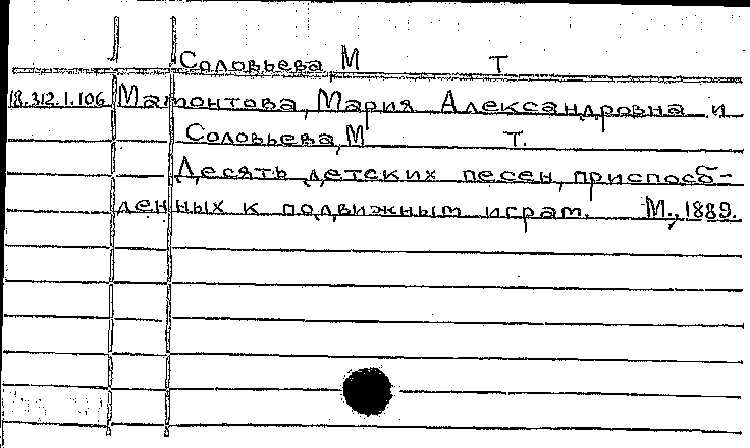 Соловьева, М Т
18.312.1.106 Мамонтова, Мария Александровна и
Соловьева, М Т.
Десять детских песен, приспособ-
ленных к подвижным играм. М., 1889.